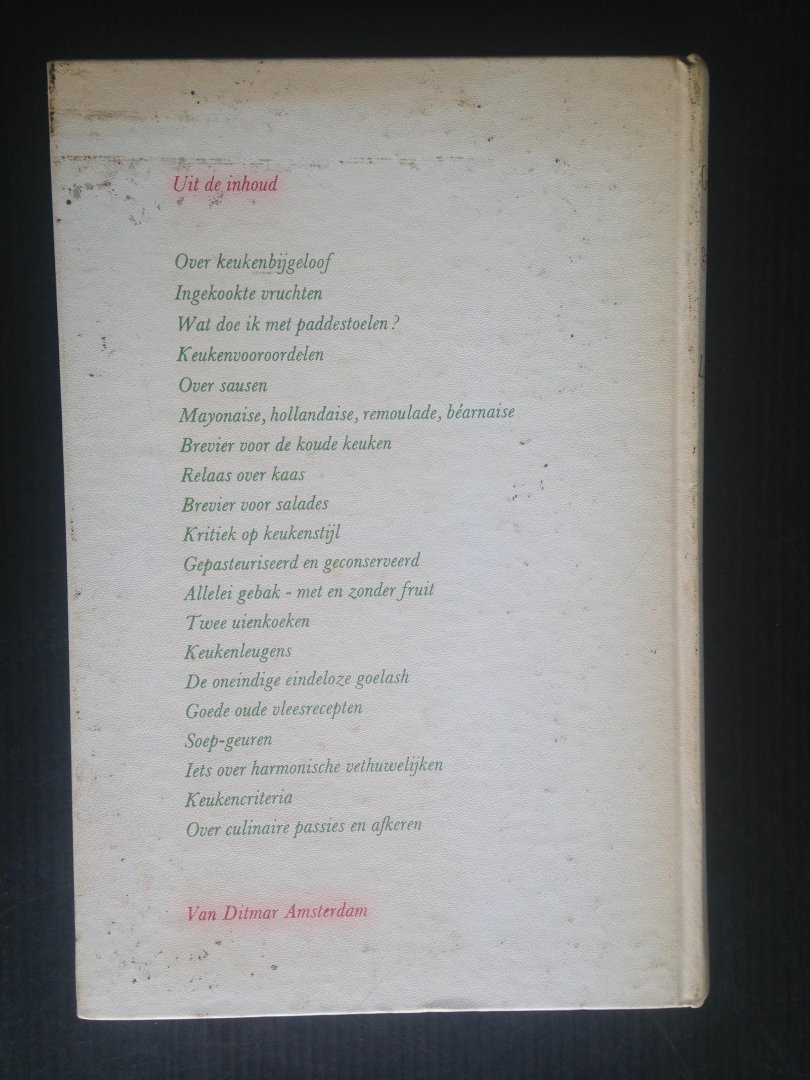 Uit de inhoud
Over keukenbijgeloof
Ingekookte vruchten
Wat doe ik met paddestoelen?
Keukenvooroordelen
Over sausen
Mayonaise, hollandaise, remoulade, béarnaise
Brevier voor de koude keuken
Relaas over kaas
Brevier voor salades
Kritiek op keukenstijl
Gepasteuriseerd en geconserveerd
Allelei gebak - met en zonder fruit
Twee uienkoeken
Keukenleugens
De oneindige eindeloze goelash
Goede oude vleesrecepten
Soep-geuren
Iets over harmonische vethuwelijken
Keukencriteria
Over culinaire passies en afkeren
Van Ditmar Amsterdam